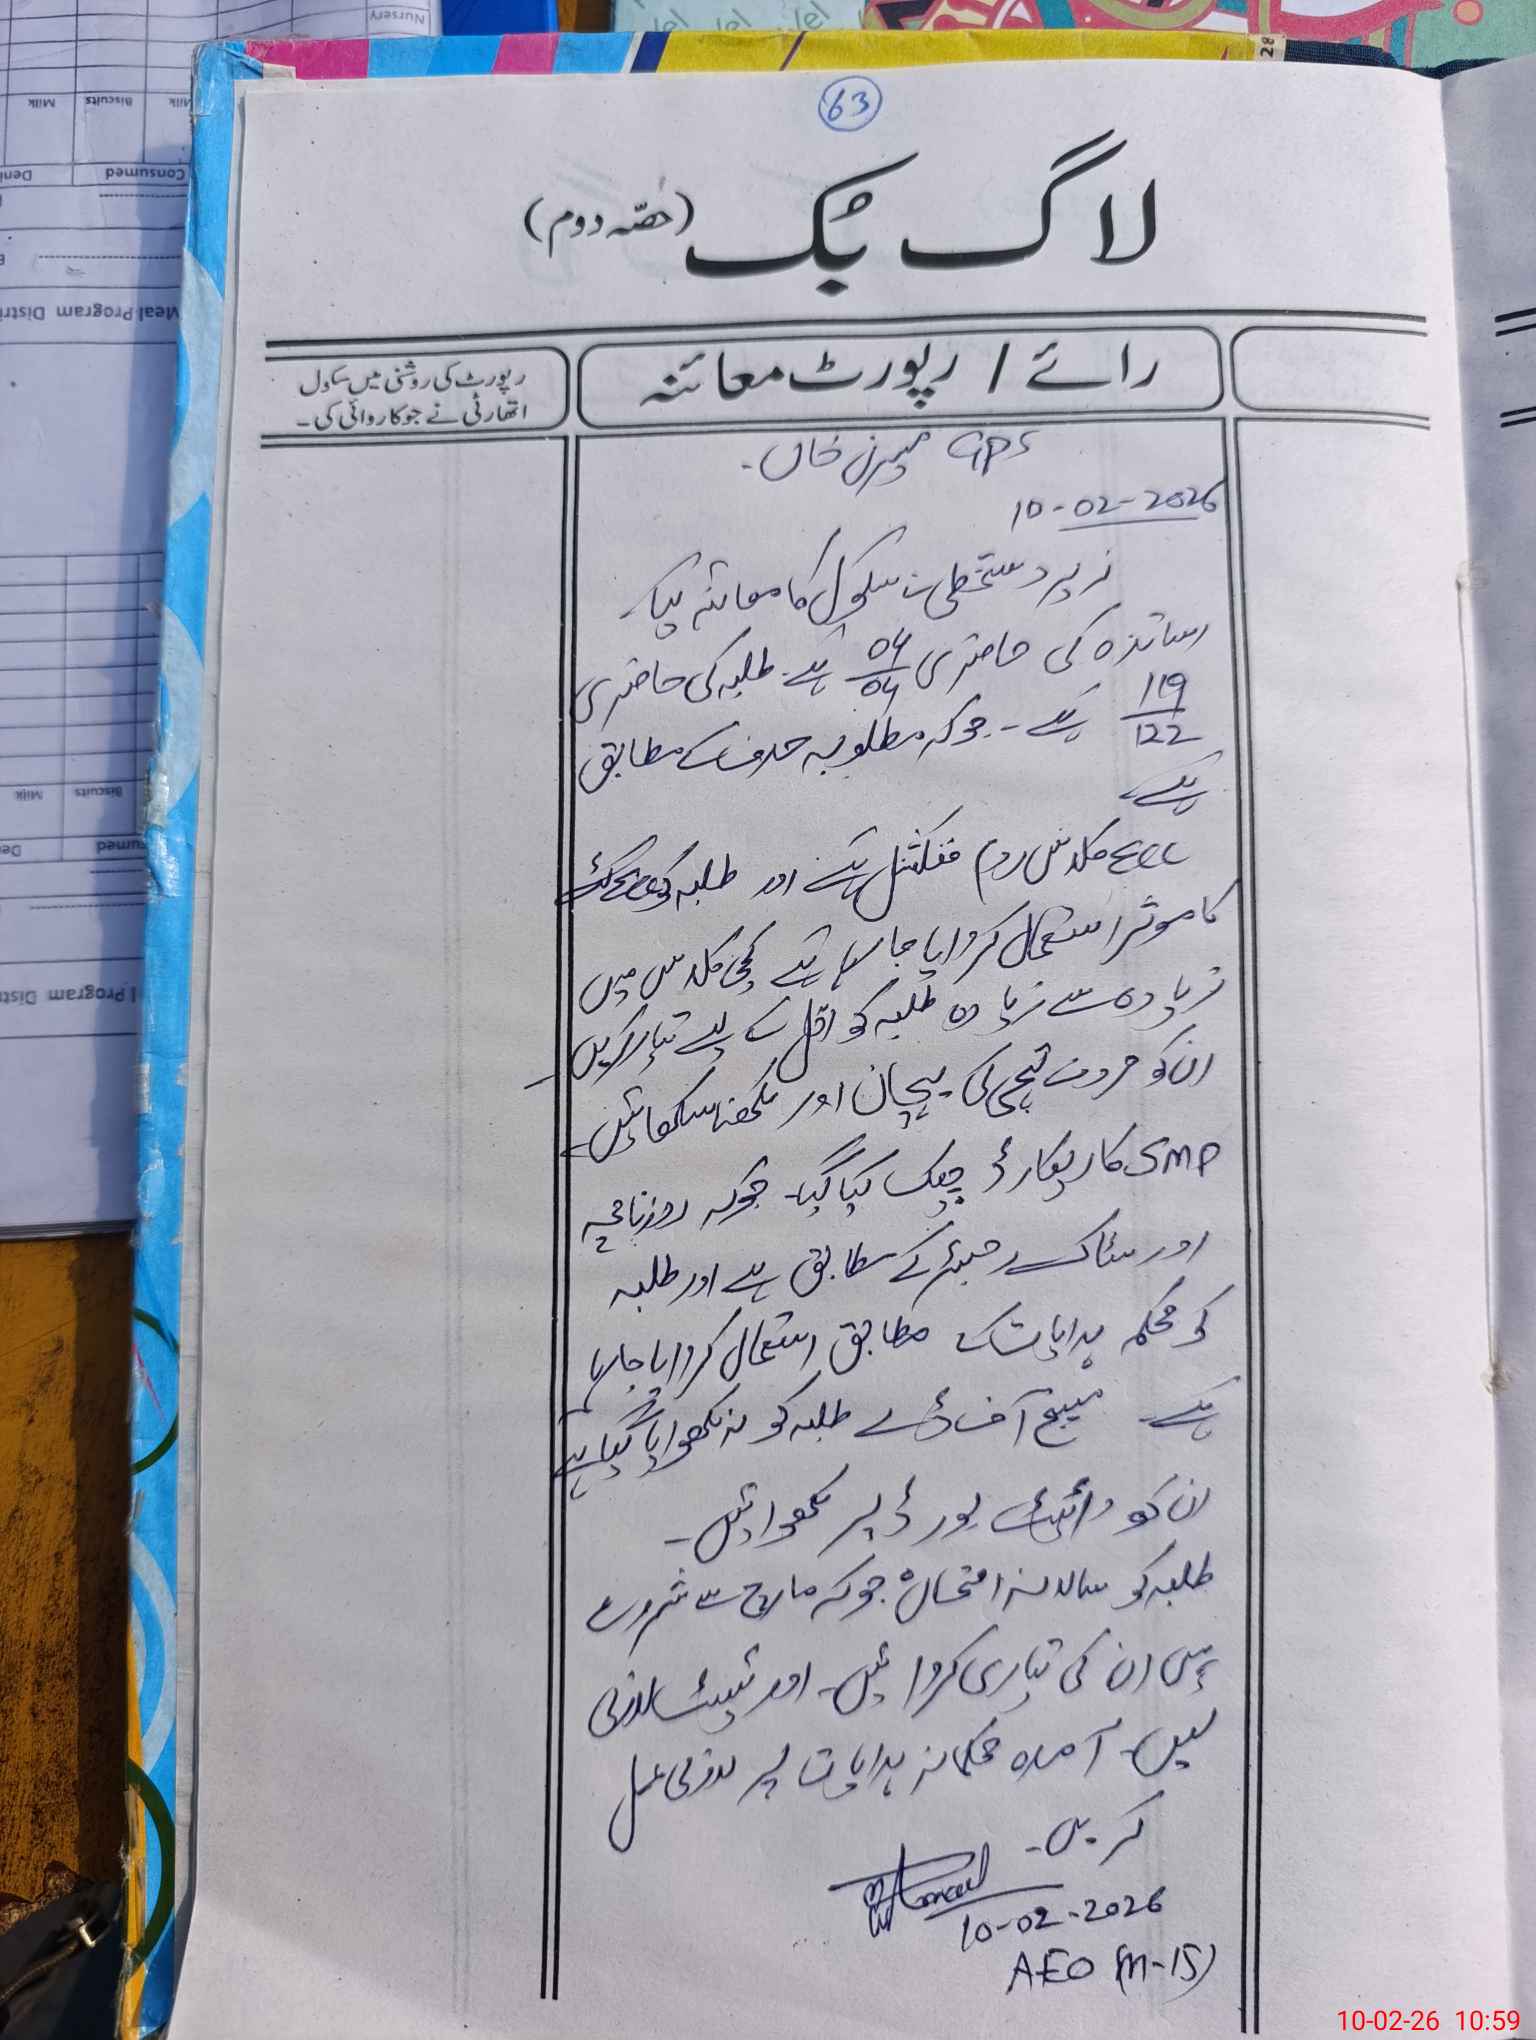 63
لاگ بُک (حصّہ دوم)
رائے / رپورٹ معائنہ
رپورٹ کی روشنی میں سکول
اتھارٹی نے جو کاروائی کی۔
GPS خان۔
10-02-2026
زیر دستخطی نے سکول کا معائنہ کیا۔
اساتذہ کی حاضری 04/04 ہے۔ طلبہ کی حاضری
119/122 ہے۔ جو کہ مطلوبہ حدف کے مطابق
ہے۔
ECE کلاس روم فنکشنل ہے اور طلبہ کو
کا موثر استعمال کروایا جا رہا ہے کچی کلاس میں
زیادہ سے زیادہ طلبہ کو اوّل کے لیے تیار کریں۔
ان کو حروف تہجی کی پہچان اور لکھنا سکھائیں۔
SMP کا ریکارڈ چیک کیا گیا۔ جو کہ روزنامچہ
اور سٹاک رجسٹر کے مطابق ہے اور طلبہ
کو محکمہ ہدایات کے مطابق استعمال کروایا جا رہا
ہے۔ میسج آف ڈے طلبہ کو نہ لکھوایا گیا ہے
ان کو وائیٹ بورڈ پر لکھوائیں۔
طلبہ کو سالانہ امتحان جو کہ مارچ سے شروع
ہیں ان کی تیاری کروائیں۔ اور ٹیسٹ لازمی
لیں۔ آمدہ محکمانہ ہدایات پر لازمی عمل
کریں۔
10-02-2026
AEO (M-15)
Nursery
Milk
Biscuits
Milk
Consumed
Meal Program Distri
Biscuits
Milk
Program Distri
28
10-02-26 10:59